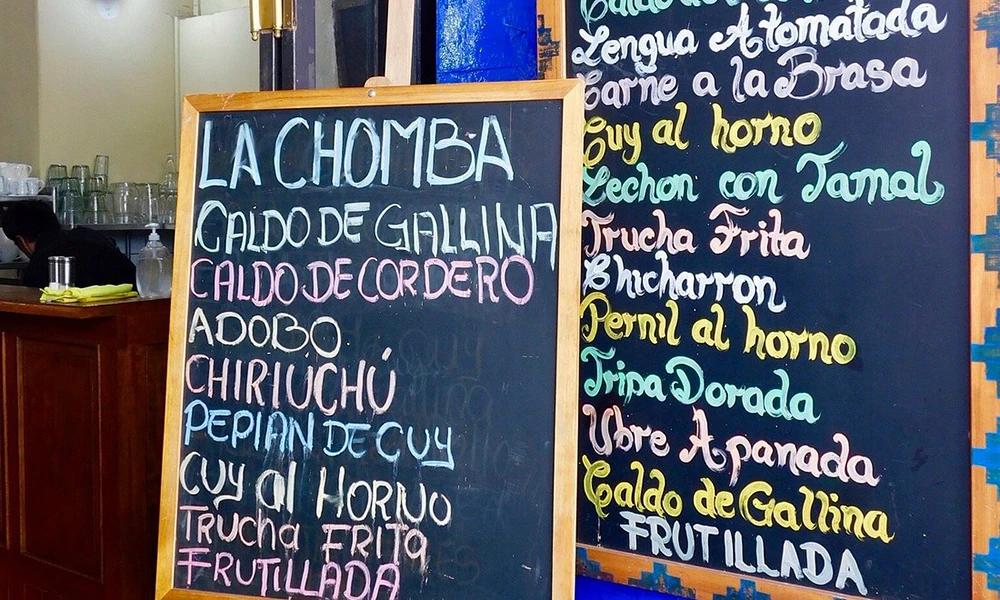 LA CHOMBA
CALDO DE GALLINA
CALDO DE CORDERO
ADOBO
CHIRIUCHÚ
PEPIAN DE CUY
CUY al HORNO
TRUCHA FRITA
FRUTILLADA
Caldo de
Lengua Atomatada
Carne a la Brasa
Cuy al horno
Lechon con Tamal
Trucha Frita
Chicharron
Pernil al horno
Tripa Dorada
Ubre Apanada
Caldo de Gallina
FRUTILLADA